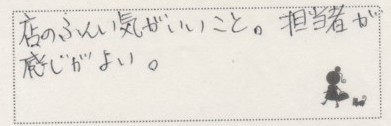 店のふんい気がいいこと。担当者が
感じがよい。